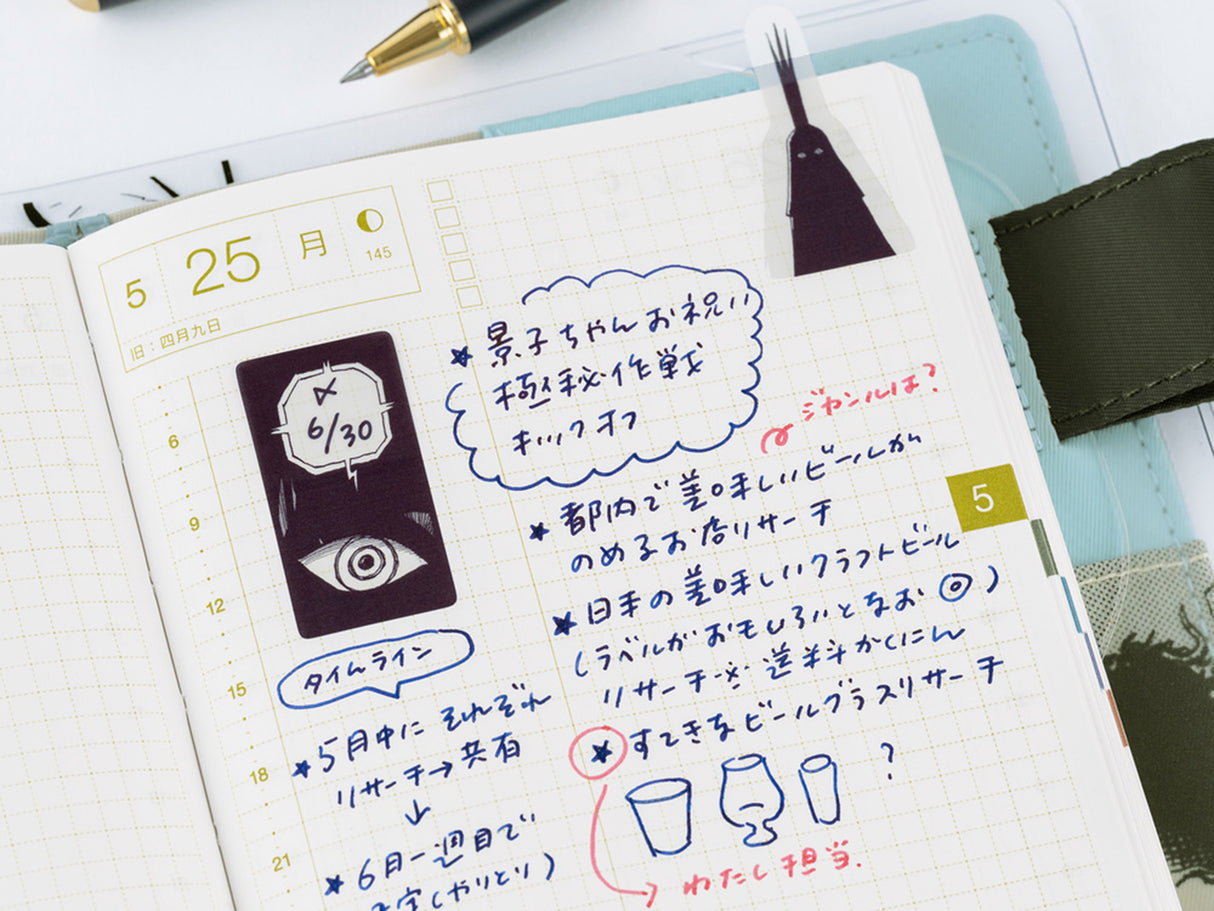 5 25 月
145
旧：四月九日
6
9
12
15
18
21
〆
6/30
タイムライン
★5月中に それぞれ
リサーチ→共有
↓
★6月一週目で
(やりとり)
★景子ちゃんお祝い
極秘作戦
キックオフ
ジャンルは?
★都内で美味しいビールが
のめるお店リサーチ
★日本の美味しいクラフトビール
(ラベルがおもしろいとなお◎)
リサーチ※送料かくにん
★すてきなビールグラスリサーチ
?
わたし担当.
5